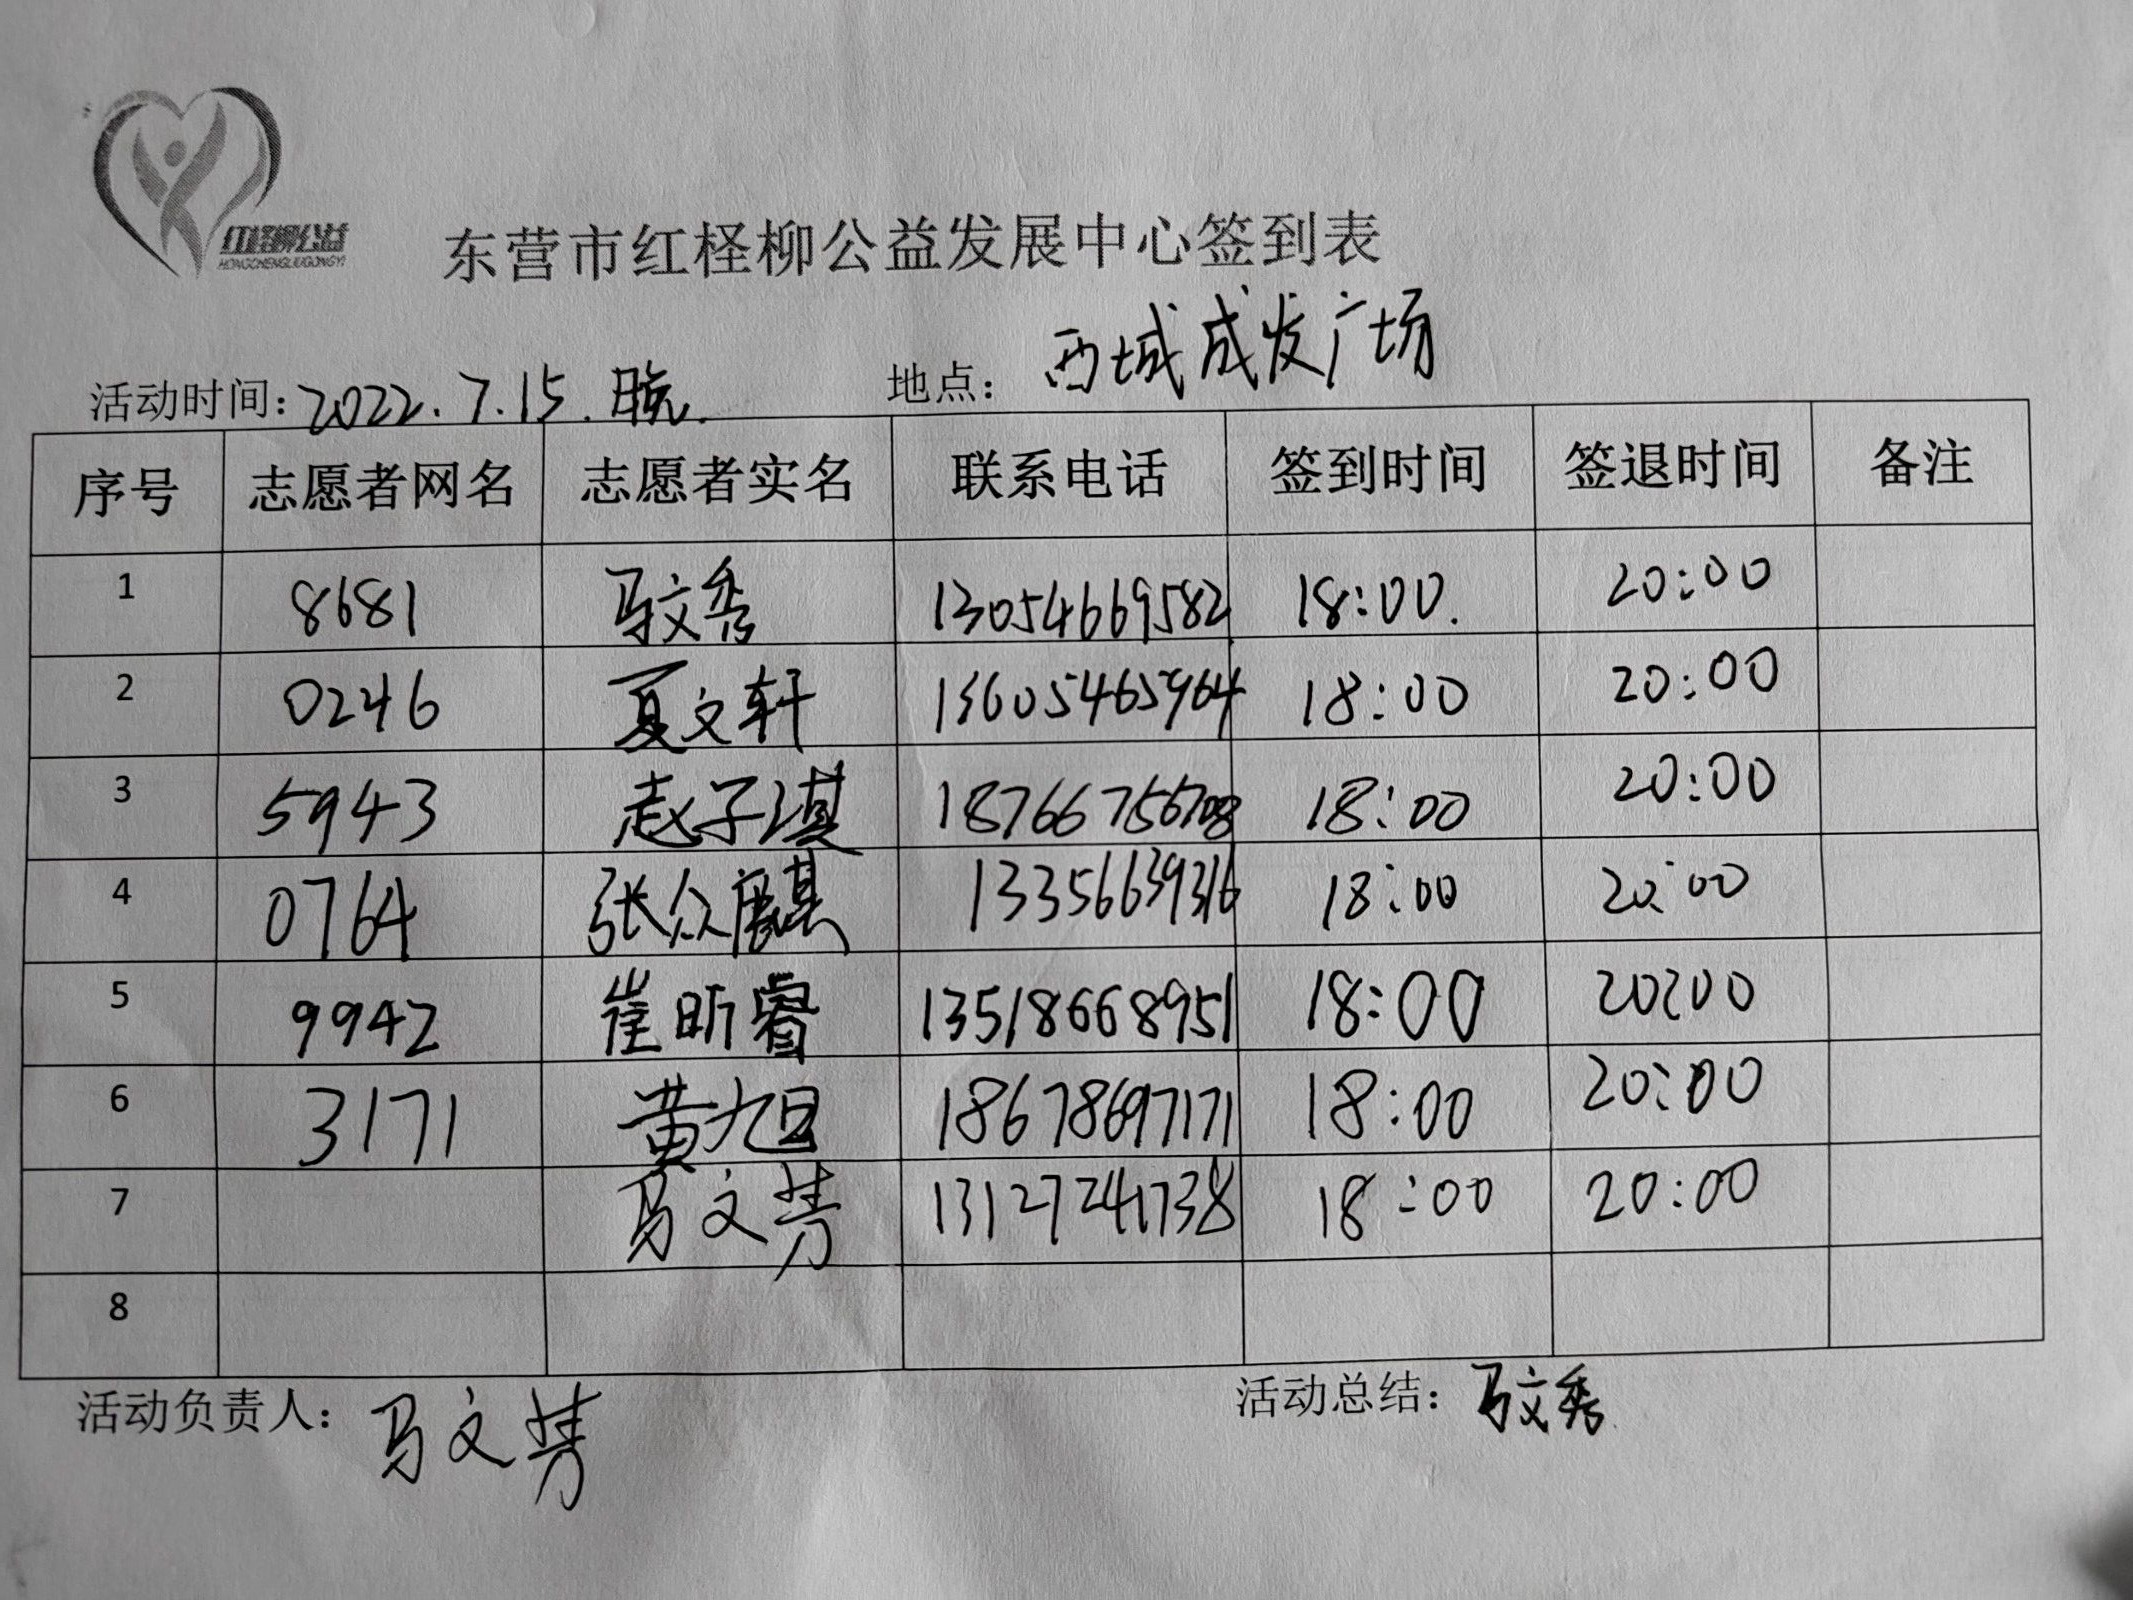 红柽柳公益
HONGCHENGLIUGONGYI
东营市红柽柳公益发展中心签到表
活动时间：2022.7.15.晚. 地点：西城成发广场
序号 志愿者网名 志愿者实名 联系电话 签到时间 签退时间 备注
1 8681 马文秀 13054669582 18:00. 20:00
2 0246 夏文轩 13605465964 18:00 20:00
3 5943 赵子淇 18766756708 18:00 20:00
4 0764 张众麒 13356639316 18:00 20:00
5 9942 崔昕睿 13518668951 18:00 20:00
6 3171 黄旭 18678697171 18:00 20:00
7 马文芳 13127241738 18:00 20:00
8
活动负责人：马文芳 活动总结：马文秀